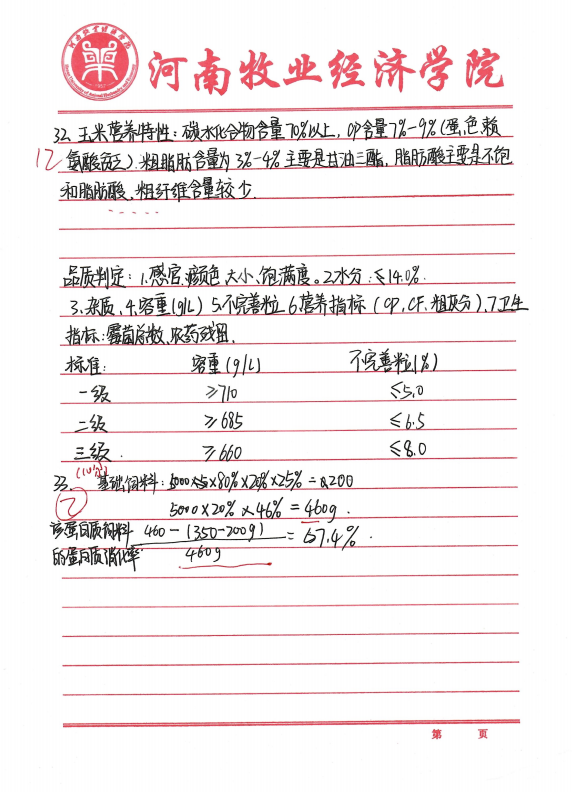 河南牧业经济学院
32. 玉米营养特性：碳水化合物含量70%以上，CP含量7%-9%(蛋,色,赖
12
氨酸缺乏).粗脂肪含量为3%-4%主要是甘油三酯，脂肪酸主要是不饱
和脂肪酸，粗纤维含量较少.
品质判定：1.感官:颜色 大小、饱满度。2.水分：≤14.0%.
3.杂质、4.容重(g/L) 5.不完善粒 6.营养指标(CP,CF,粗灰分).7.卫生
指标:霉菌总数、农药残留.
标准： 容重(g/L) 不完善粒(%)
一级 ≥710 ≤5.0
二级 ≥685 ≤6.5
三级. ≥660 ≤8.0
(10分)
33. 基础饲料：5000×5×80%×20%×25%=200
7
5000×20%×46%=460g.
该蛋白质饲料 460-(350-200g) = 67.4%.
的蛋白质消化率 460g
第 页